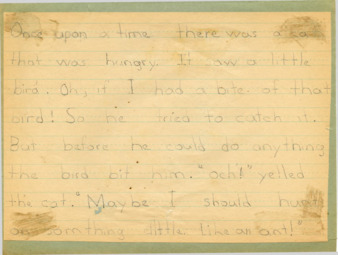 Once upon a time there was a cat
that was hungry. It saw a little
bird. Oh, if I had a bite of that
bird! So he tried to catch it.
But before he could do anything
the bird bit him. "ooh!" yelled
the cat. "Maybe I should hunt
little. Like an ant!"